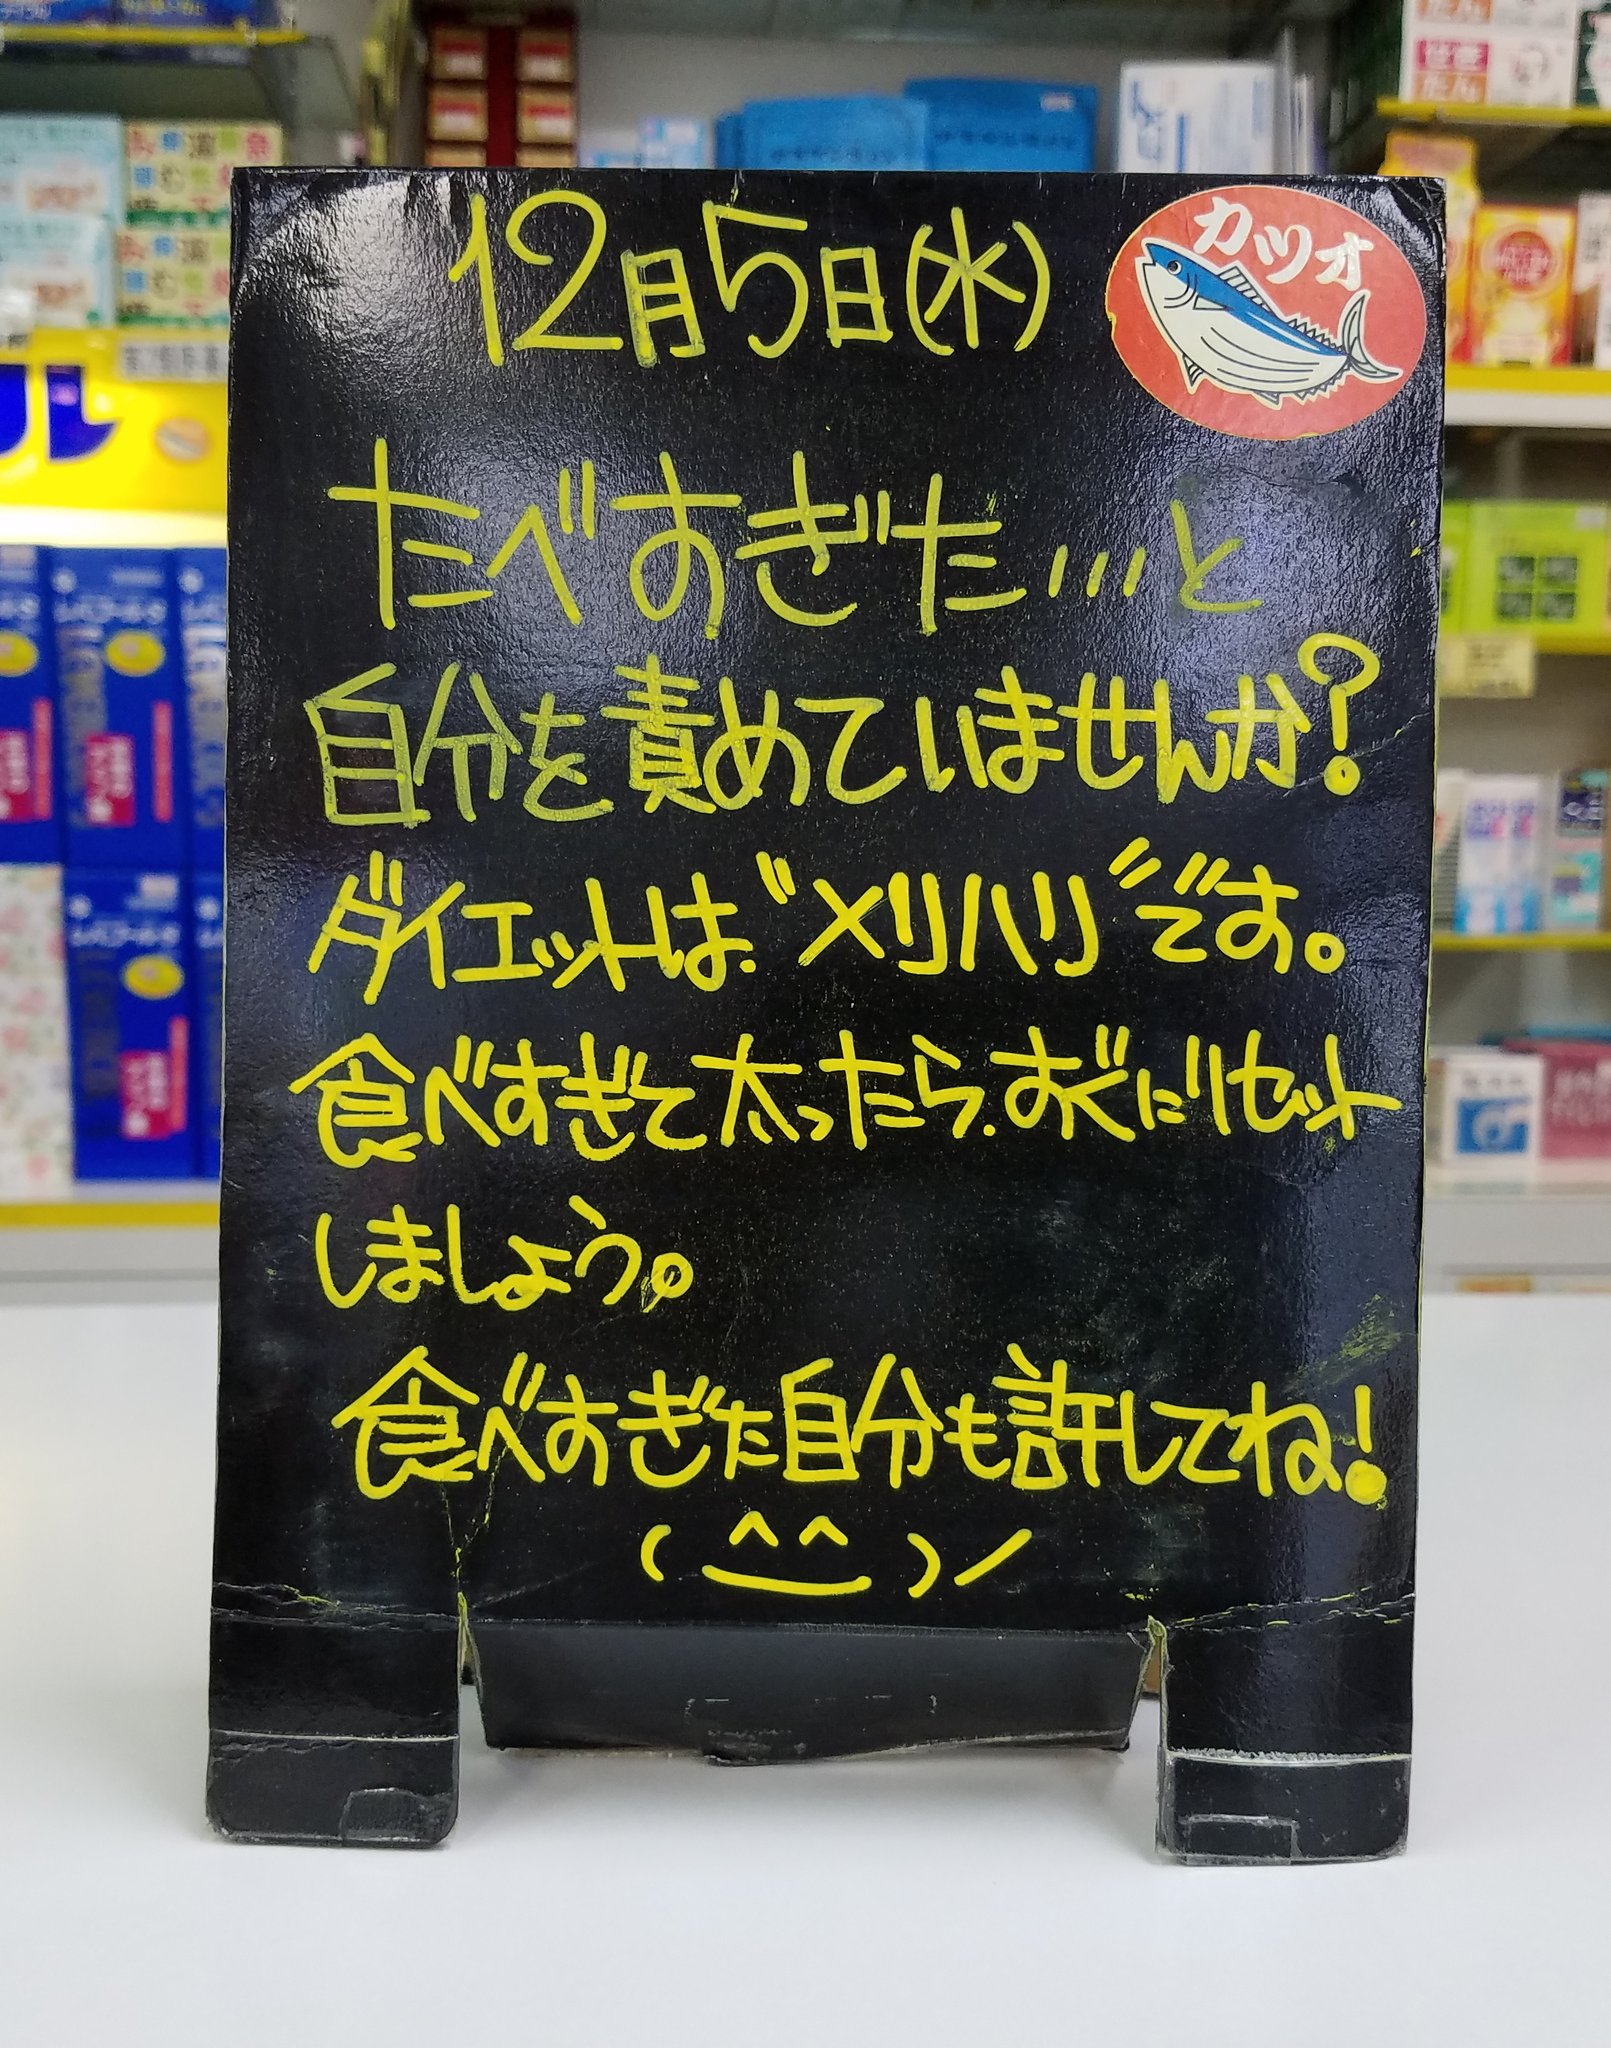 12月5日(水)
カツオ
たべすぎた…と
自分を責めていませんか?
ダイエットは、"メリハリ"です。
食べすぎて太ったら、すぐにリセット
しましょう。
食べすぎた自分も許してね!
(^_^)/